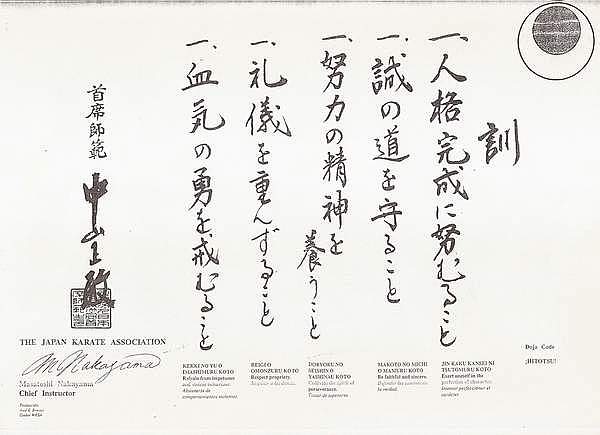 訓
一、人格完成に努むること
一、誠の道を守ること
一、努力の精神を養うこと
一、礼儀を重んずること
一、血気の勇を戒むること
首席師範
中山正敏
THE JAPAN KARATE ASSOCIATION
M Nakayama
Masatoshi Nakayama
Chief Instructor
KEKKI NO YU O
IMASHIMERU KOTO
Refrain from impetuous
and violent behaviour.
REIGI O
OMONZURU KOTO
Respect propriety.
DORYOKU NO
SEISHIN O
YASHINAU KOTO
Cultivate the spirit of
perseverance.
MAKOTO NO MICHI
O MAMORU KOTO
Be faithful and sincere.
JIN KAKU KANSEI NI
TSUTOMERU KOTO
Exert oneself in the
perfection of character.
Dojo Code
¡HITOTSU!